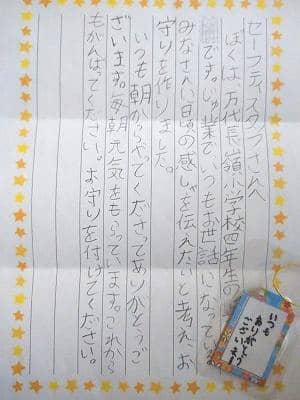 セーフティスタッフさんへ
ぼくは、万代長嶺小学校四年生の
です。じゅ業で、いつもお世話になっている
みなさんへ日ごろの感しゃを伝えたいと考え、お
守りを作りました。
いつも朝からやってくださってありがとうご
ざいます。毎朝元気をもらっています。これから
もがんばってください。お守りを付けてください。
いつも
ありがとう
ございます